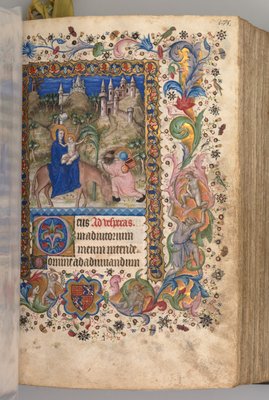 eus Ad vesperas.
in adiutorium
meum intende.
Domine ad adiuuandum